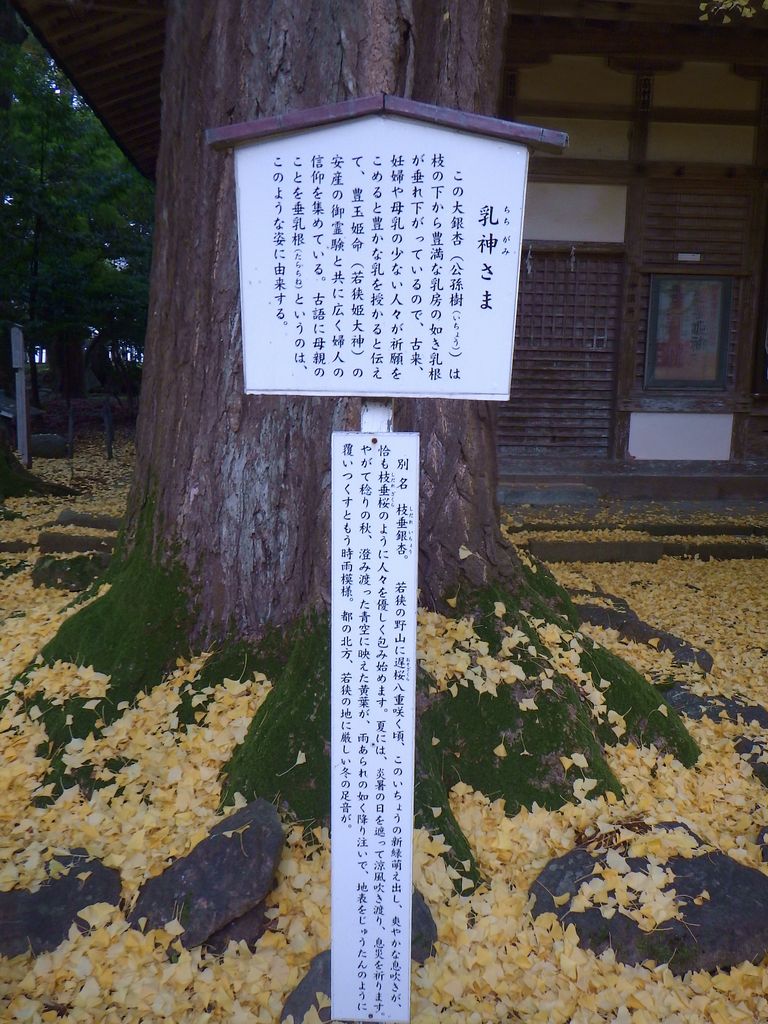 乳神さま
ちちがみ
この大銀杏（公孫樹（いちょう））は
枝の下から豊満な乳房の如き乳根
が垂れ下がっているので、古来、
妊婦や母乳の少ない人々が祈願を
こめると豊かな乳を授かると伝え
て、豊玉姫命（若狭姫大神）の
安産の御霊験と共に広く婦人の
信仰を集めている。古語に母親の
ことを垂乳根（たらちね）というのは、
このような姿に由来する。
別名　枝垂銀杏。　若狭の野山に遅桜八重咲く頃、このいちょうの新緑萌え出し、爽やかな息吹きが、
しだれ いちょう
おそざくら
恰も枝垂桜のように人々を優しく包み始めます。夏には、炎暑の日を遮って涼風吹き渡り、息災を祈ります。
しだれざくら
やがて稔りの秋、澄み渡った青空に映えた黄葉が、雨あられの如く降り注いで、地表をじゅうたんのように
覆いつくすともう時雨模様。都の北方、若狭の地に厳しい冬の足音が。